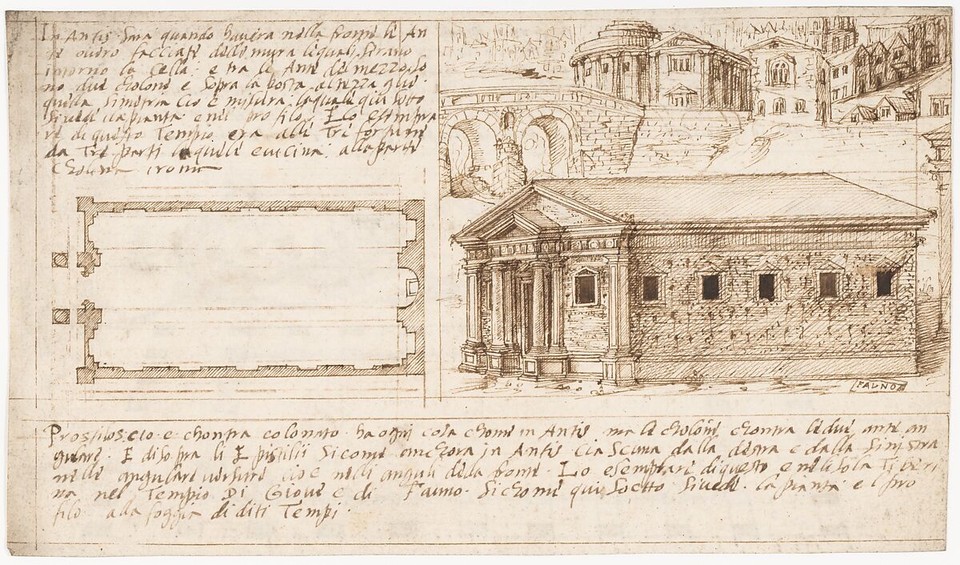 In Antis sara quando havera nella fronte li An
ti overo facciate delle mura liquali serano
intorno la Cella. e tra le Anti del mezzo so
no due cholone e sopra la posta
quella simetria cio e misura. laqual qui sotto
si vede la pianta e nel profilo. Lo esempla
re di questo Tempio era alle Tre fortune
da Tre parti laquale e vicina alla porta
FAUNO
Prostilos. cio e chontra colonato. ha ogni cosa chome in Antis. ma le cholone chontra le due ante an
gulare. E di sopra li E pistilii sicome anchora in Antis. Ciascuna dalla destra e dalla sinistra
nelle angulare versure cioe nelli anguli dela fronte. Lo esemplare di questo e nelisola Tiberi
na nel Tempio Di Giove e di Fauno. Sichome qui Socto Sivede. la pianta e l pro
filo alla foggia di diti Tempi.